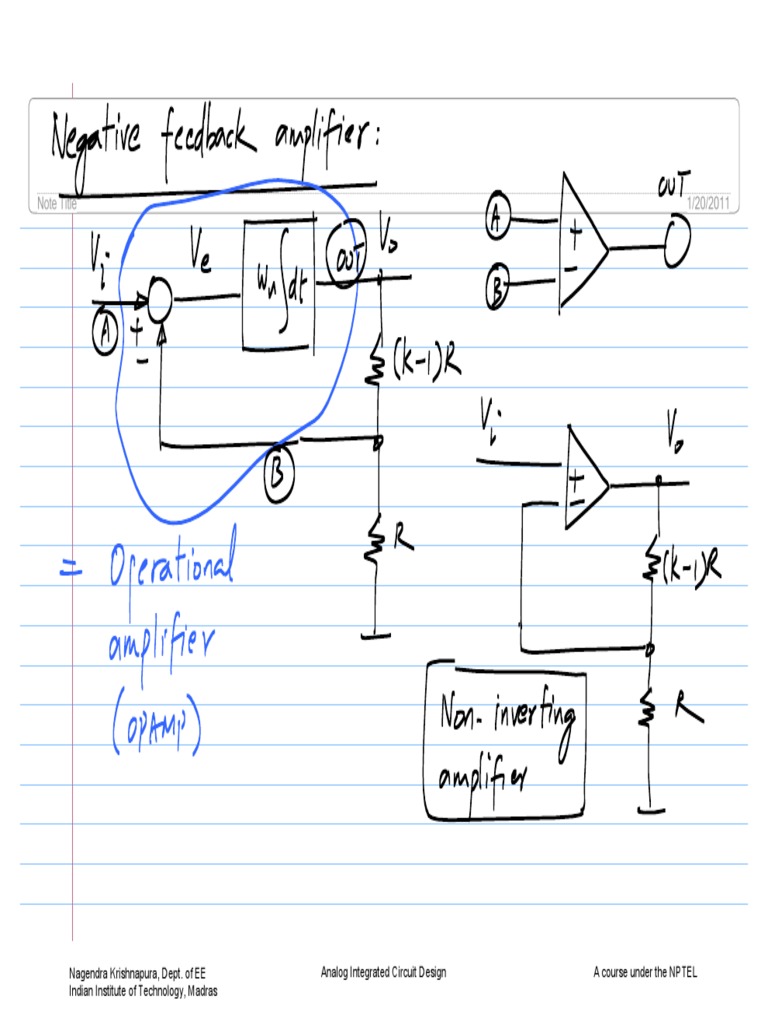 Negative feedback amplifier:
Note Title
1/20/2011
V_i
V_e
ω_u∫dt
OUT
V_o
A
+
−
B
(k-1)R
R
= Operational
amplifier
(OPAMP)
A
B
+
−
OUT
V_i
+
−
V_o
(k-1)R
R
Non-inverting
amplifier
Nagendra Krishnapura, Dept. of EE
Indian Institute of Technology, Madras
Analog Integrated Circuit Design
A course under the NPTEL